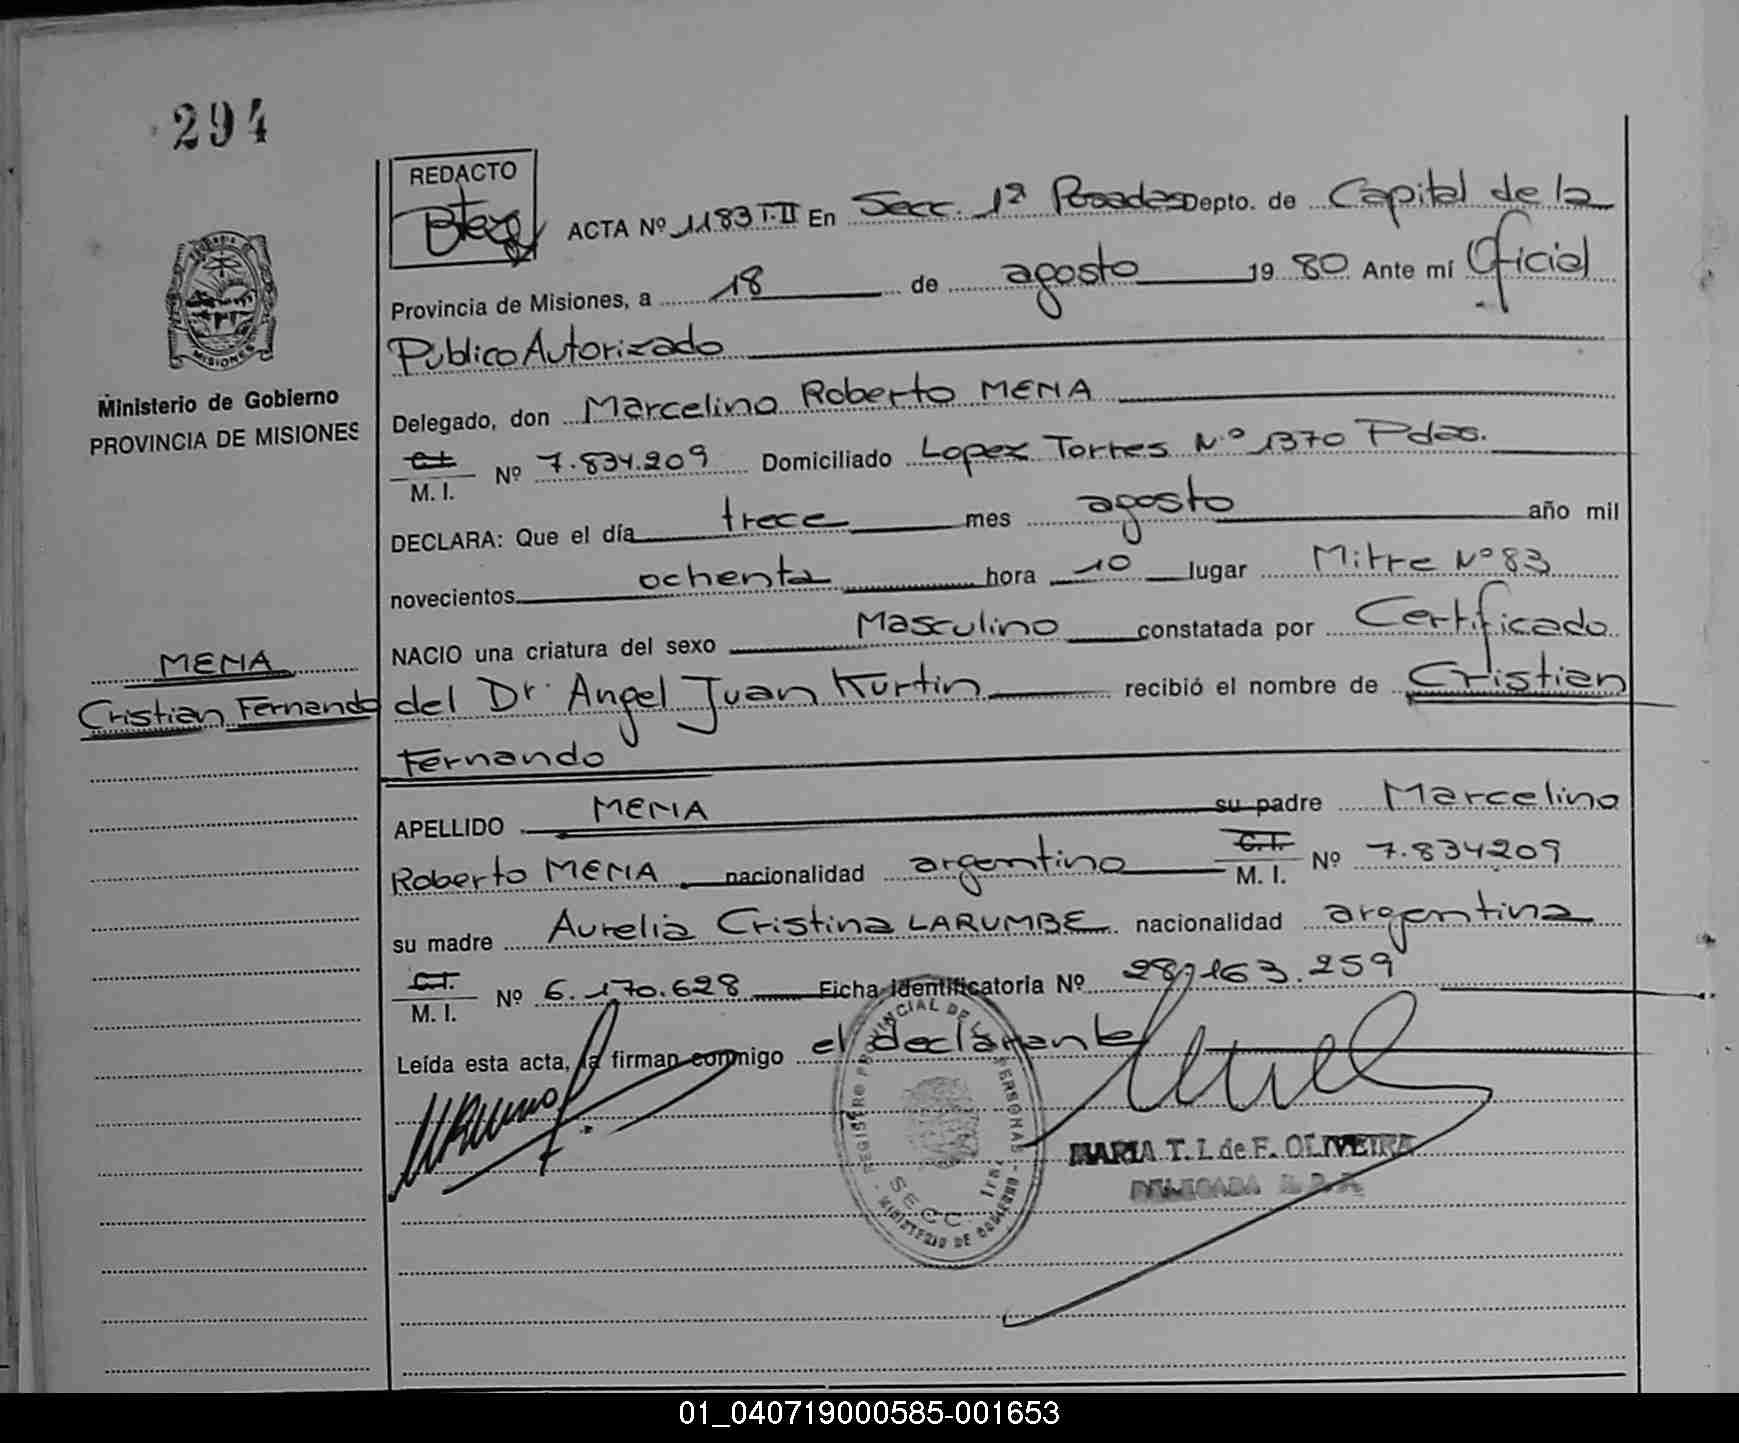 294
REDACTO
ACTA Nº 1183 T.II En Secc. 1ª Posadas Depto. de Capital de la
Provincia de Misiones, a 18 de agosto 19 80 Ante mí Oficial
Publico Autorizado
MISIONES
Ministerio de Gobierno
PROVINCIA DE MISIONES
Delegado, don Marcelino Roberto MENA
C.I.
M. I. Nº 7.834.209 Domiciliado Lopez Torres Nº 1370 Pdas.
DECLARA: Que el día trece mes agosto año mil
novecientos ochenta hora 10 lugar Mitre Nº 83
NACIO una criatura del sexo Masculino constatada por Certificado
MENA
Cristian Fernando
del Dr. Angel Juan Kurtin recibió el nombre de Cristian
Fernando
APELLIDO MENA su padre Marcelino
Roberto MENA nacionalidad argentino C.I. M. I. Nº 7.834209
su madre Aurelia Cristina LARUMBE nacionalidad argentina
C.I.
M. I. Nº 6.170.628 Ficha Identificatoria Nº 28.163.259
Leída esta acta, la firman conmigo el declarante
REGISTRO PROVINCIAL DE LAS PERSONAS
SECC. 1ra.
MINISTERIO DE GOBIERNO
MARIA T. L de F. OLIVEIRA
DELEGADA R. P. P.
01_040719000585-001653